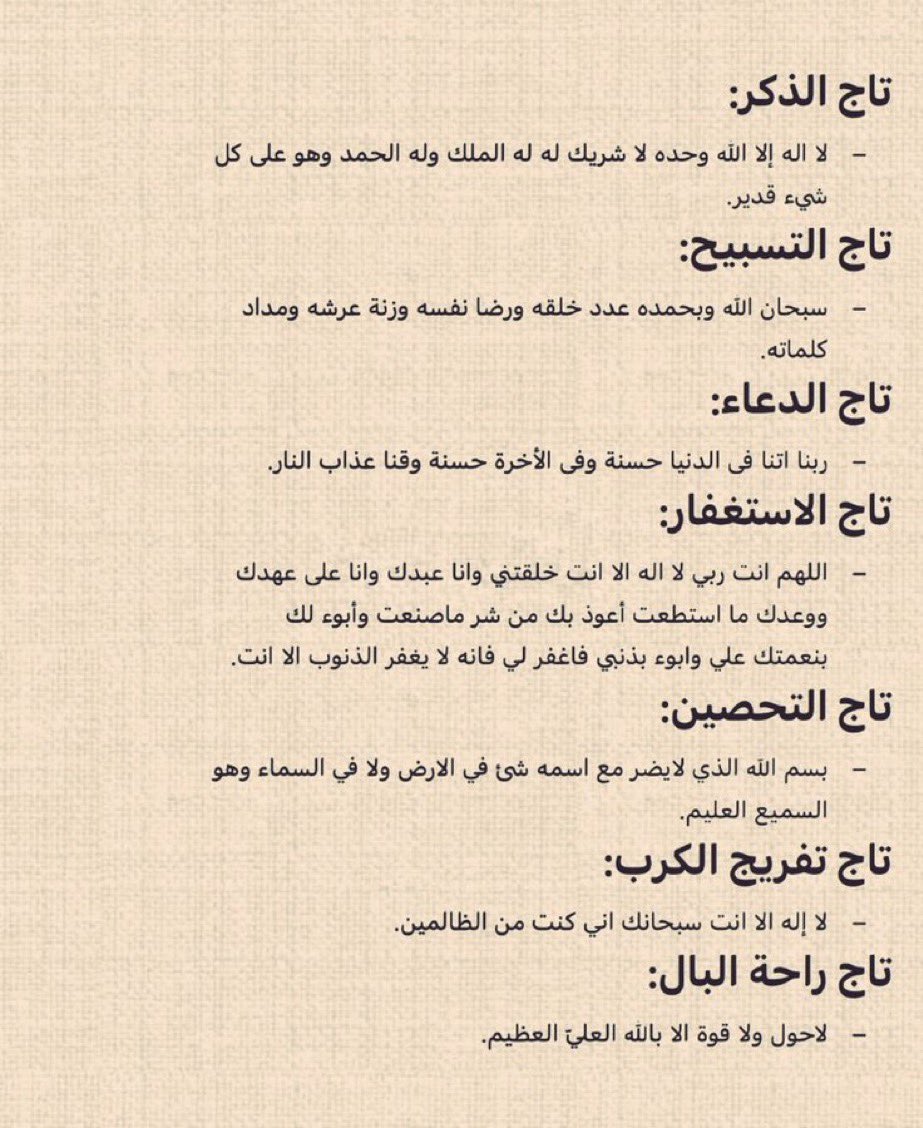 تاج الذكر:
– لا اله إلا الله وحده لا شريك له له الملك وله الحمد وهو على كل
شيء قدير.
تاج التسبيح:
– سبحان الله وبحمده عدد خلقه ورضا نفسه وزنة عرشه ومداد
كلماته.
تاج الدعاء:
– ربنا اتنا فى الدنيا حسنة وفى الأخرة حسنة وقنا عذاب النار.
تاج الاستغفار:
– اللهم انت ربي لا اله الا انت خلقتني وانا عبدك وانا على عهدك
ووعدك ما استطعت أعوذ بك من شر ماصنعت وأبوء لك
بنعمتك علي وابوء بذنبي فاغفر لي فانه لا يغفر الذنوب الا انت.
تاج التحصين:
– بسم الله الذي لايضر مع اسمه شئ في الارض ولا في السماء وهو
السميع العليم.
تاج تفريج الكرب:
– لا إله الا انت سبحانك اني كنت من الظالمين.
تاج راحة البال:
– لاحول ولا قوة الا بالله العليّ العظيم.